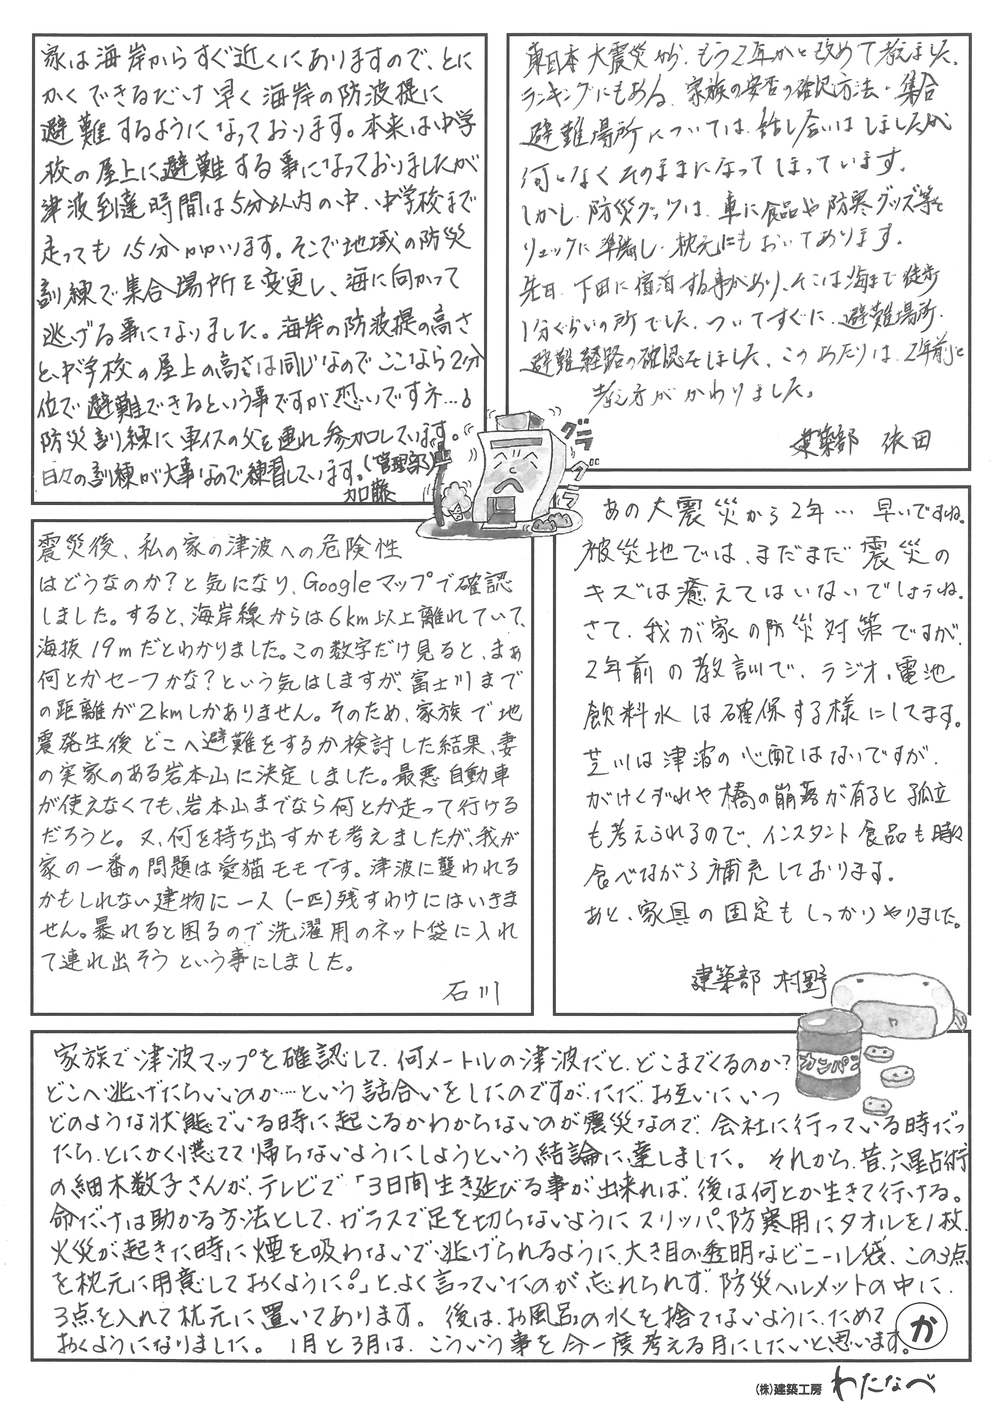 家は海岸からすぐ近くにありますので、とに
かくできるだけ早く海岸の防波提に
避難するようになっております。本来は中学
校の屋上に避難する事になっておりましたが
津波到達時間は5分以内の中、中学校まで
走っても15分かかります。そこで地域の防災
訓練で集合場所を変更し、海に向かって
逃げる事になりました。海岸の防波提の高さ
と、中学校の屋上の高さは同じなのでここなら2分
位で避難できるという事ですが恐いですネ…。
防災訓練に車イスの父を連れ参加しています。
日々の訓練が大事なので練習しています。(管理部)
加藤
グラ
グラ
東日本大震災から、もう2年かと改めて考えました。
ランキングにもある、家族の安否の確認方法・集合
避難場所については、話し合いはしましたが
何となくそのままになってしまっています。
しかし、防災グッズは、車に食品や防寒グッズ等を
リュックに準備し、枕元にもおいてあります。
先日、下田に宿泊する事があり、そこは海まで徒歩
1分くらいの所でした。ついてすぐに、避難場所、
避難経路の確認をしました。このあたりは、2年前と
考え方がかわりました。
建築部 依田
震災後、私の家の津波への危険性
はどうなのか?と気になり、Googleマップで確認
しました。すると、海岸線からは6km以上離れていて、
海抜19mだとわかりました。この数字だけ見ると、まぁ
何とかセーフかな?という気はしますが、富士川まで
の距離が2kmしかありません。そのため、家族で地
震発生後どこへ避難をするか検討した結果、妻
の実家のある岩本山に決定しました。最悪自動車
が使えなくても、岩本山までなら何とか走って行ける
だろうと。又、何を持ち出すかも考えましたが、我が
家の一番の問題は愛猫モモです。津波に襲われる
かもしれない建物に一人(一匹)残すわけにはいきま
せん。暴れると困るので洗濯用のネット袋に入れ
て連れ出そうという事にしました。
石川
あの大震災から2年… 早いですね。
被災地では、まだまだ震災の
キズは癒えてはいないでしょうね。
さて、我が家の防災対策ですが、
2年前の教訓で、ラジオ、電池
飲料水は確保する様にしてます。
芝川は津波の心配はないですが、
がけくずれや橋の崩落が有ると孤立
も考えられるので、インスタント食品も時々
食べながら補充しております。
あと、家具の固定もしっかりやりました。
建築部 村野
カンパン
家族で津波マップを確認して、何メートルの津波だと、どこまでくるのか?
どこへ逃げたらいいのか…という話合いをしたのですが、ただ、お互いにいつ
どのような状態でいる時に起こるかわからないのが震災なので、会社に行っている時だっ
たら、とにかく慌てて帰らないようにしようという結論に達しました。 それから、昔、六星占術
の細木数子さんが、テレビで「3日間生き延びる事が出来れば、後は何とか生きて行ける。
命だけは助かる方法として、ガラスで足を切らないようにスリッパ、防寒用にタオルを1枚、
火災が起きた時に煙を吸わないで逃げられるように、大き目の透明なビニール袋、この3点
を枕元に用意しておくように。」と、よく言っていたのが忘れられず、防災ヘルメットの中に、
3点を入れて枕元に置いてあります。 後は、お風呂の水を捨てないように、ためて
おくようになりました。 1月と3月は、こういう事を今一度考える月にしたいと思います。か
(株)建築工房 わたなべ